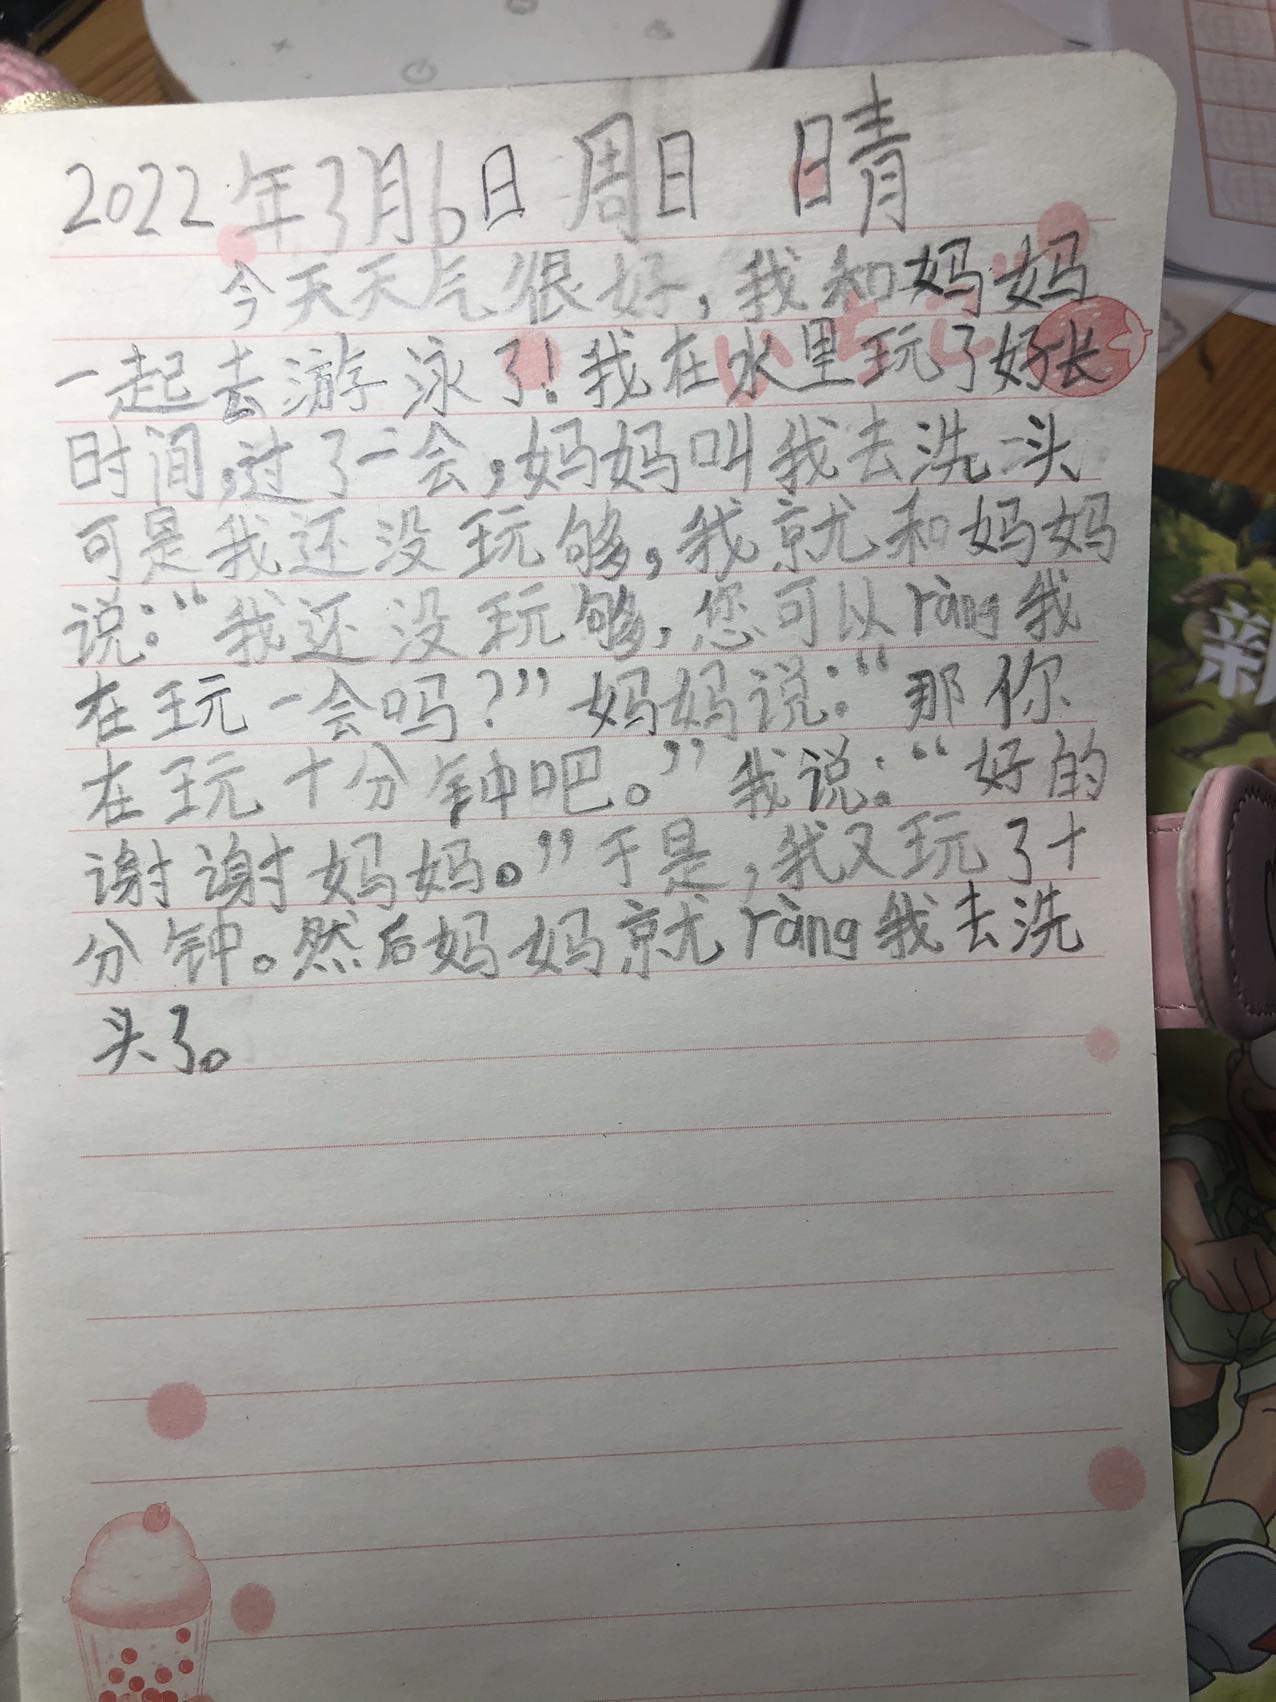 2022年3月6日 周日 晴
今天天气很好,我和妈妈
一起去游泳了!我在水里玩了好长
时间,过了一会,妈妈叫我去洗头
可是我还没玩够,我就和妈妈
说:“我还没玩够,您可以ràng我
在玩一会吗?”妈妈说:“那你
在玩十分钟吧。”我说:“好的
谢谢妈妈。”于是,我又玩了十
分钟。然后妈妈就ràng我去洗
头了。
新